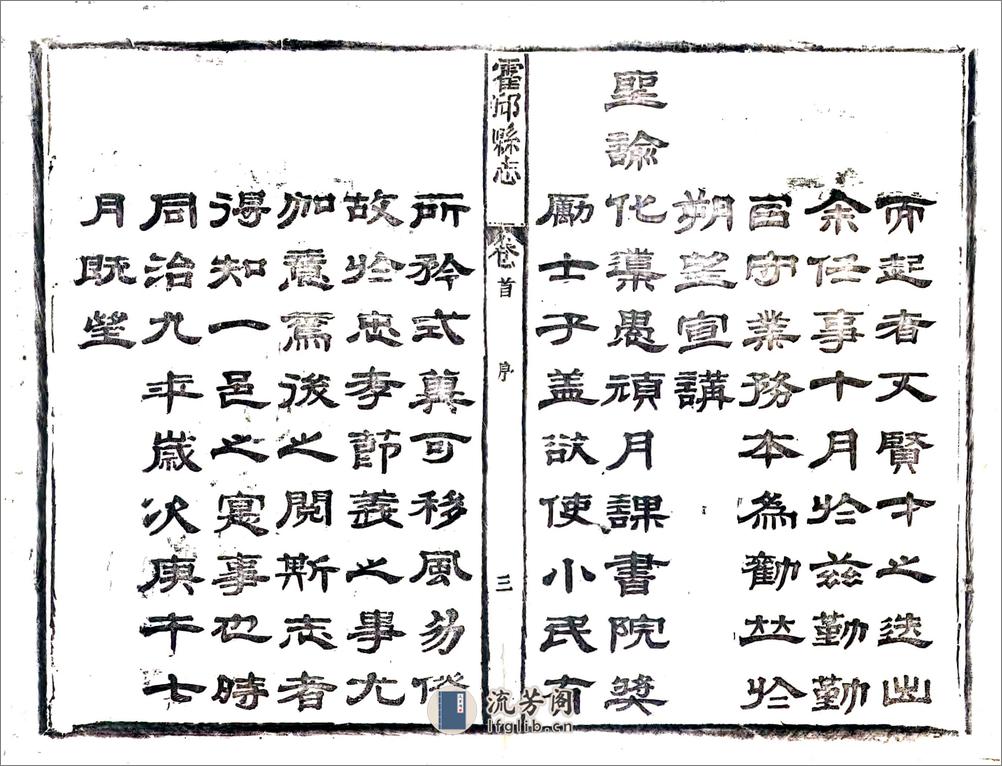 而起者又賢才之迭出
余任事十月於茲勤勤
官守業務本為勸竝於
朔望宣講
聖諭化導愚頑月課書院獎
勵士子盖欲使小民有
霍邱縣志 卷首 序 三
所矜式冀可移風易俗
故於忠孝節義之事尤
加意焉後之閱斯志者
得知一邑之寔事也時
同治九年歲次庚午七
月既望
流芳阁
lfglib.cn